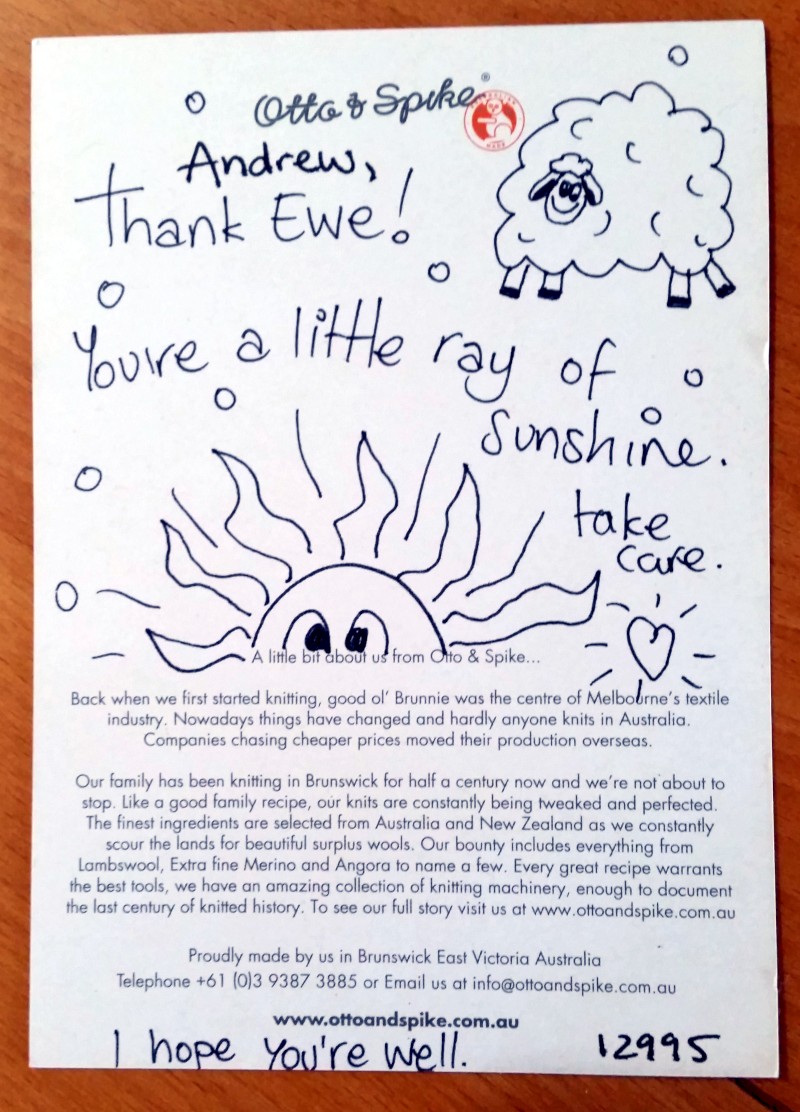 Otto & Spike®
AUSTRALIAN MADE
Andrew,
Thank Ewe!
You're a little ray of
sunshine.
take
care.
A little bit about us from Otto & Spike...
Back when we first started knitting, good ol' Brunnie was the centre of Melbourne's textile
industry. Nowadays things have changed and hardly anyone knits in Australia.
Companies chasing cheaper prices moved their production overseas.
Our family has been knitting in Brunswick for half a century now and we're not about to
stop. Like a good family recipe, our knits are constantly being tweaked and perfected.
The finest ingredients are selected from Australia and New Zealand as we constantly
scour the lands for beautiful surplus wools. Our bounty includes everything from
Lambswool, Extra fine Merino and Angora to name a few. Every great recipe warrants
the best tools, we have an amazing collection of knitting machinery, enough to document
the last century of knitted history. To see our full story visit us at www.ottoandspike.com.au
Proudly made by us in Brunswick East Victoria Australia
Telephone +61 (0)3 9387 3885 or Email us at info@ottoandspike.com.au
www.ottoandspike.com.au
I hope you're well.
12995